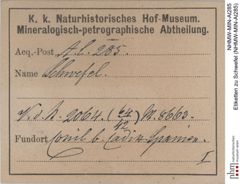 K. k. Naturhistorisches Hof-Museum.
Mineralogisch-petrographische Abtheilung.
Acq.-Post A.l. 285.
Name Schwefel.
W. d. N. 2064. N. 8660.
Fundort Conil b. Cadix Spanien.
I
NHMW-MIN-Al285
Etiketten zu Schwefel (NHMW-MIN-Al285)
nhm